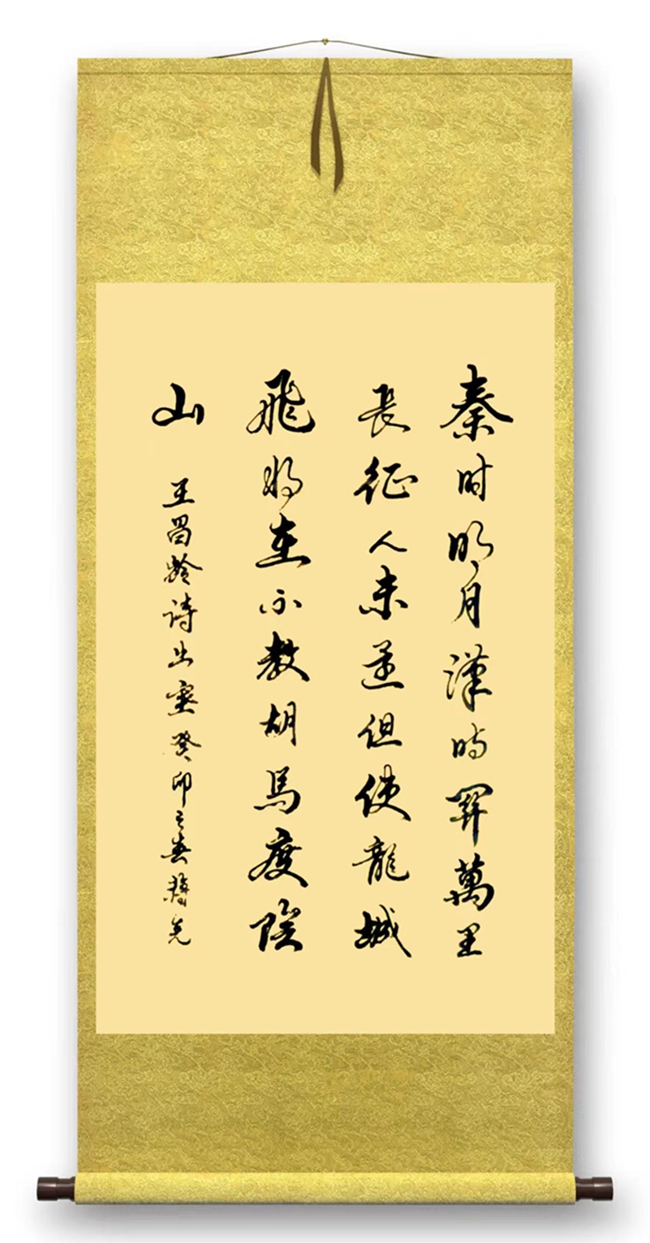 秦时明月漢時關萬里
長征人未還但使龍城
飛将在不教胡馬度陰
山 王昌齡诗出塞癸卯之春 先